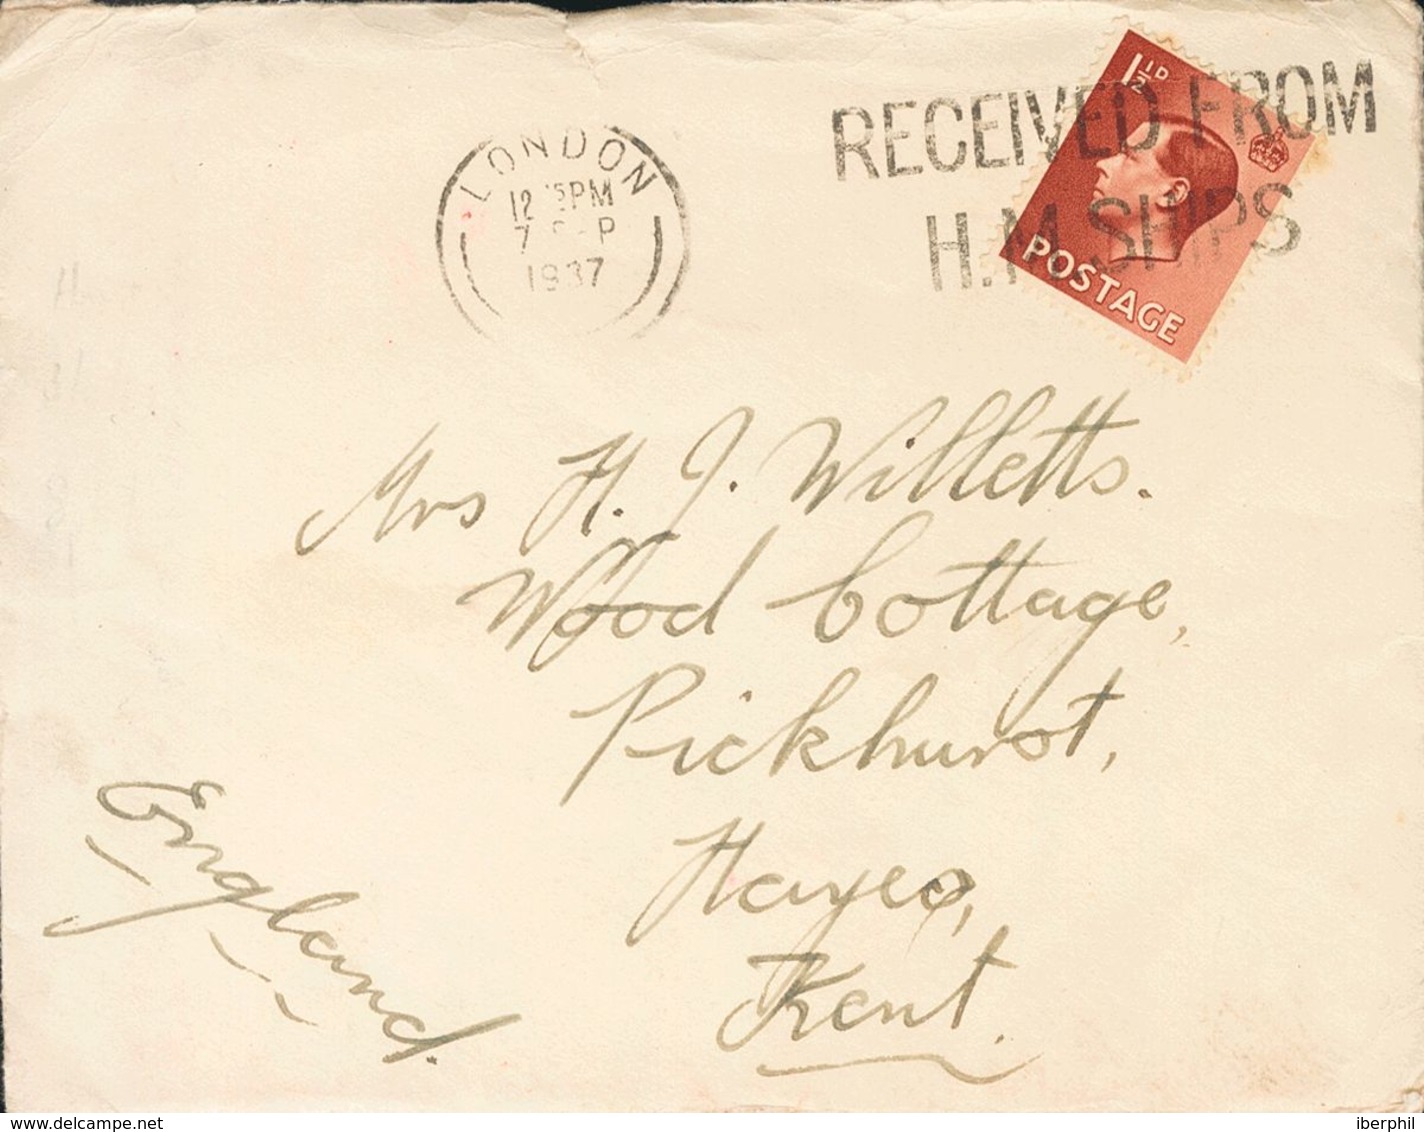 LONDON
12 15PM
7 SEP
1937
RECEIVED FROM
H.M. SHIPS
1½D
POSTAGE
Mrs H. J. Willetts.
Wood Cottage,
Pickhurst,
Hayes,
Kent.
England.
www.delcampe.net
iberphil